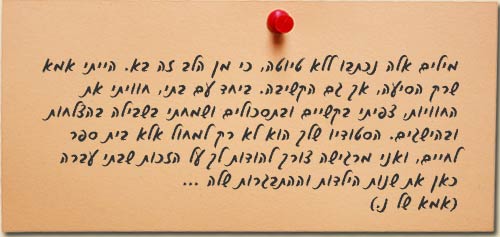 מילים אלה נכתבו ללא טיוטה, כי מן הלב זה בא. הייתי אמא
שרק הסיעה, אך גם הקשיבה. ביחד עם בתי, חוויתי את
החוויות, צפיתי בקשיים ובתסכולים ושמחתי בשבילה בהצלחות
ובהישגים. הסטודיו שלך הוא לא רק למחול אלא בית ספר
לחיים, ואני מרגישה צורך להודות לך על הזכות שבתי עברה
כאן את שנות הילדות וההתבגרות שלה ...
(אמא של נ.)